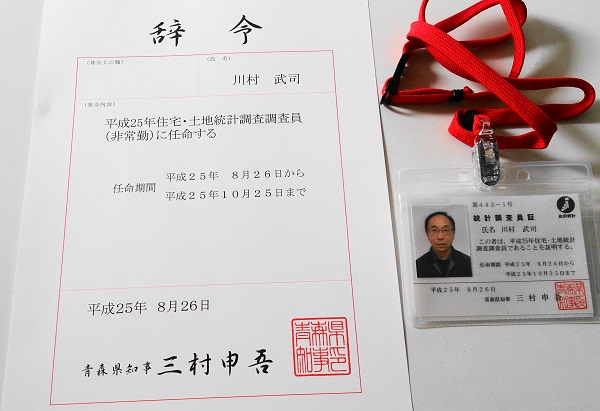 辞令
(身分上の職)
(氏名)
川村 武司
(発令内容)
平成25年住宅・土地統計調査調査員
(非常勤)に任命する
任命期間 平成25年 8月26日から
平成25年10月25日まで
平成25年 8月26日
青森県知事 三村申吾
青森県知事印
第443-1号
政府統計
統計調査員証
氏名 川村 武司
この者は、平成25年住宅・土地統計
調査調査員であることを証明する。
任命期間 平成25年 8月26日から
平成25年10月25日まで
平成25年 8月26日
青森県知事 三村 申